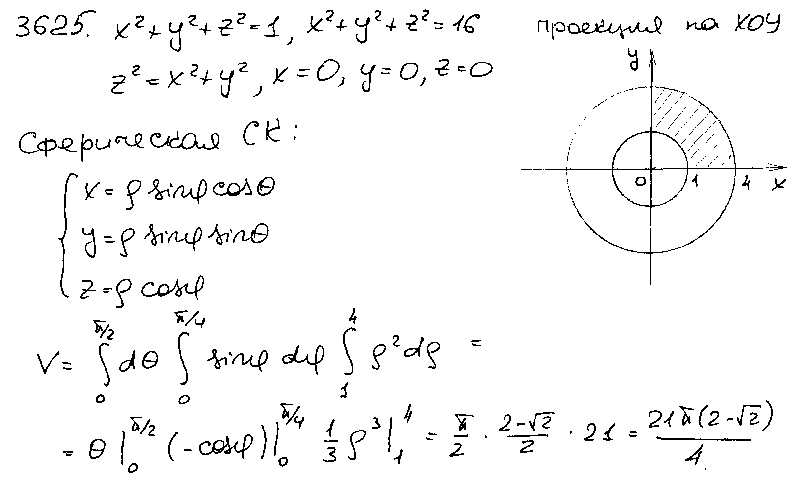 3625. x²+y²+z²=1, x²+y²+z²=16
z²=x²+y², x=0, y=0, z=0
проекция на XOY
y
0 1 4 x
Сферическая СК:
x=ρ sinφ cosθ
y=ρ sinφ sinθ
z=ρ cosφ
V= ∫₀^{π/2} dθ ∫₀^{π/4} sinφ dφ ∫₁^4 ρ²dρ =
= θ|₀^{π/2} (-cosφ)|₀^{π/4} 1/3 ρ³|₁^4 = π/2 · (2-√2)/2 · 21 = 21π(2-√2)/4.